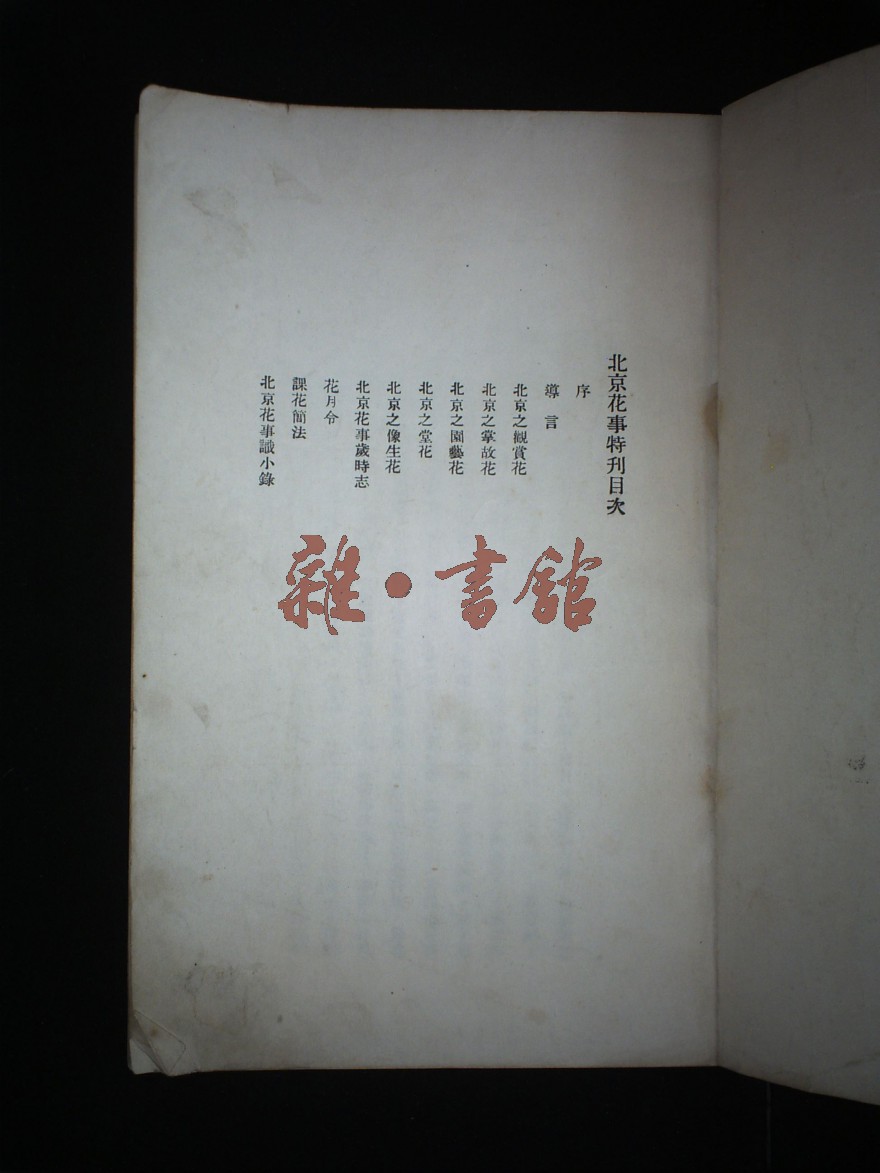 北京花事特刊目次
序
導言
北京之觀賞花
北京之掌故花
北京之園藝花
北京之堂花
北京之像生花
北京花事歲時志
花月令
課花簡法
北京花事識小錄
雜·書館